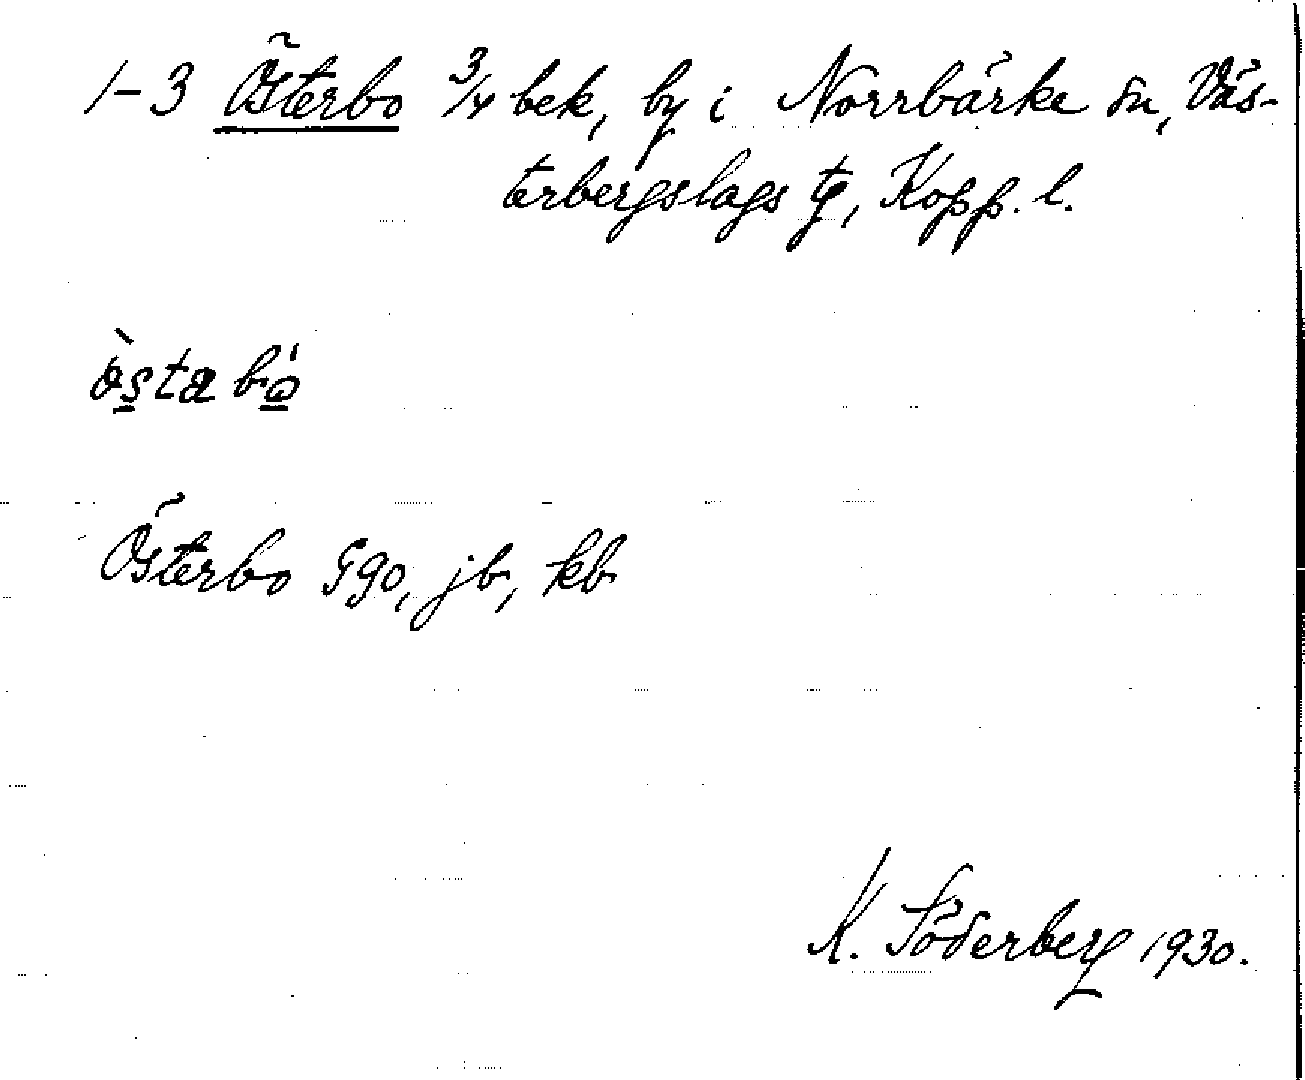 1-3 Österbo 3/4 bek, by i Norrbärke sn, Väs-
terbergslags tg, Kopp. l.
Österbo G90, jb, kb
K. Söderberg 1930.